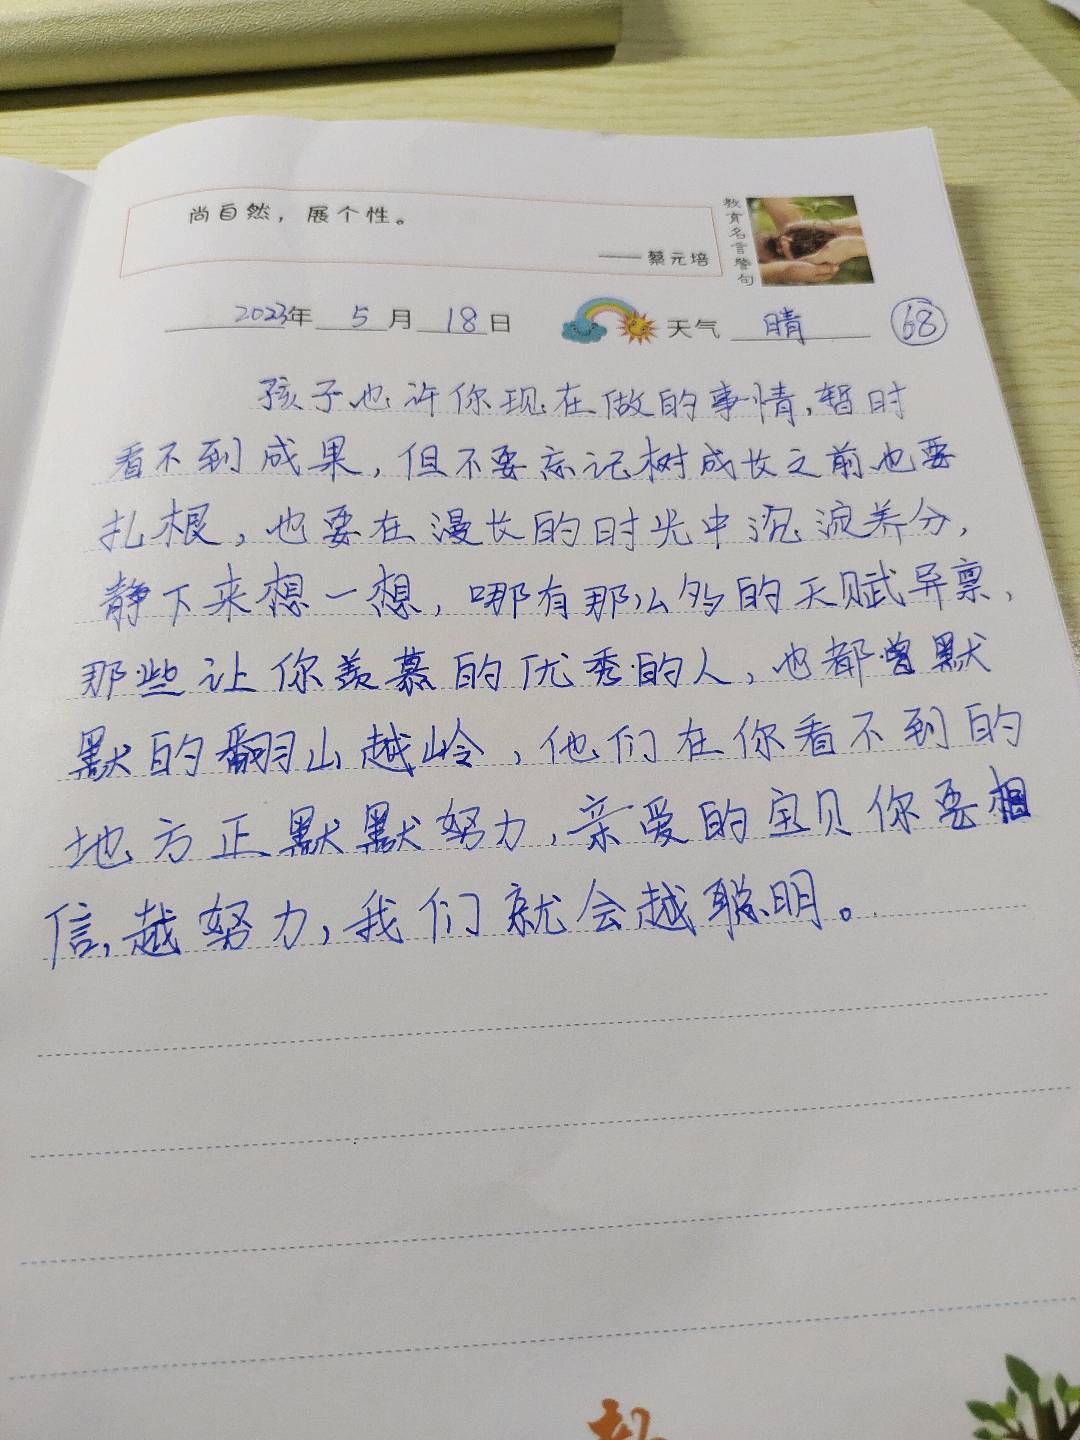 尚自然，展个性。
——蔡元培
教育名言警句
2023年 5 月 18 日 天气 晴 68
孩子也许你现在做的事情,暂时
看不到成果,但不要忘记树成长之前也要
扎根,也要在漫长的时光中沉淀养分,
静下来想一想,哪有那么多的天赋异禀,
那些让你羡慕的优秀的人,也都曾默
默的翻山越岭,他们在你看不到的
地方正默默努力,亲爱的宝贝你要相
信,越努力,我们就会越聪明。